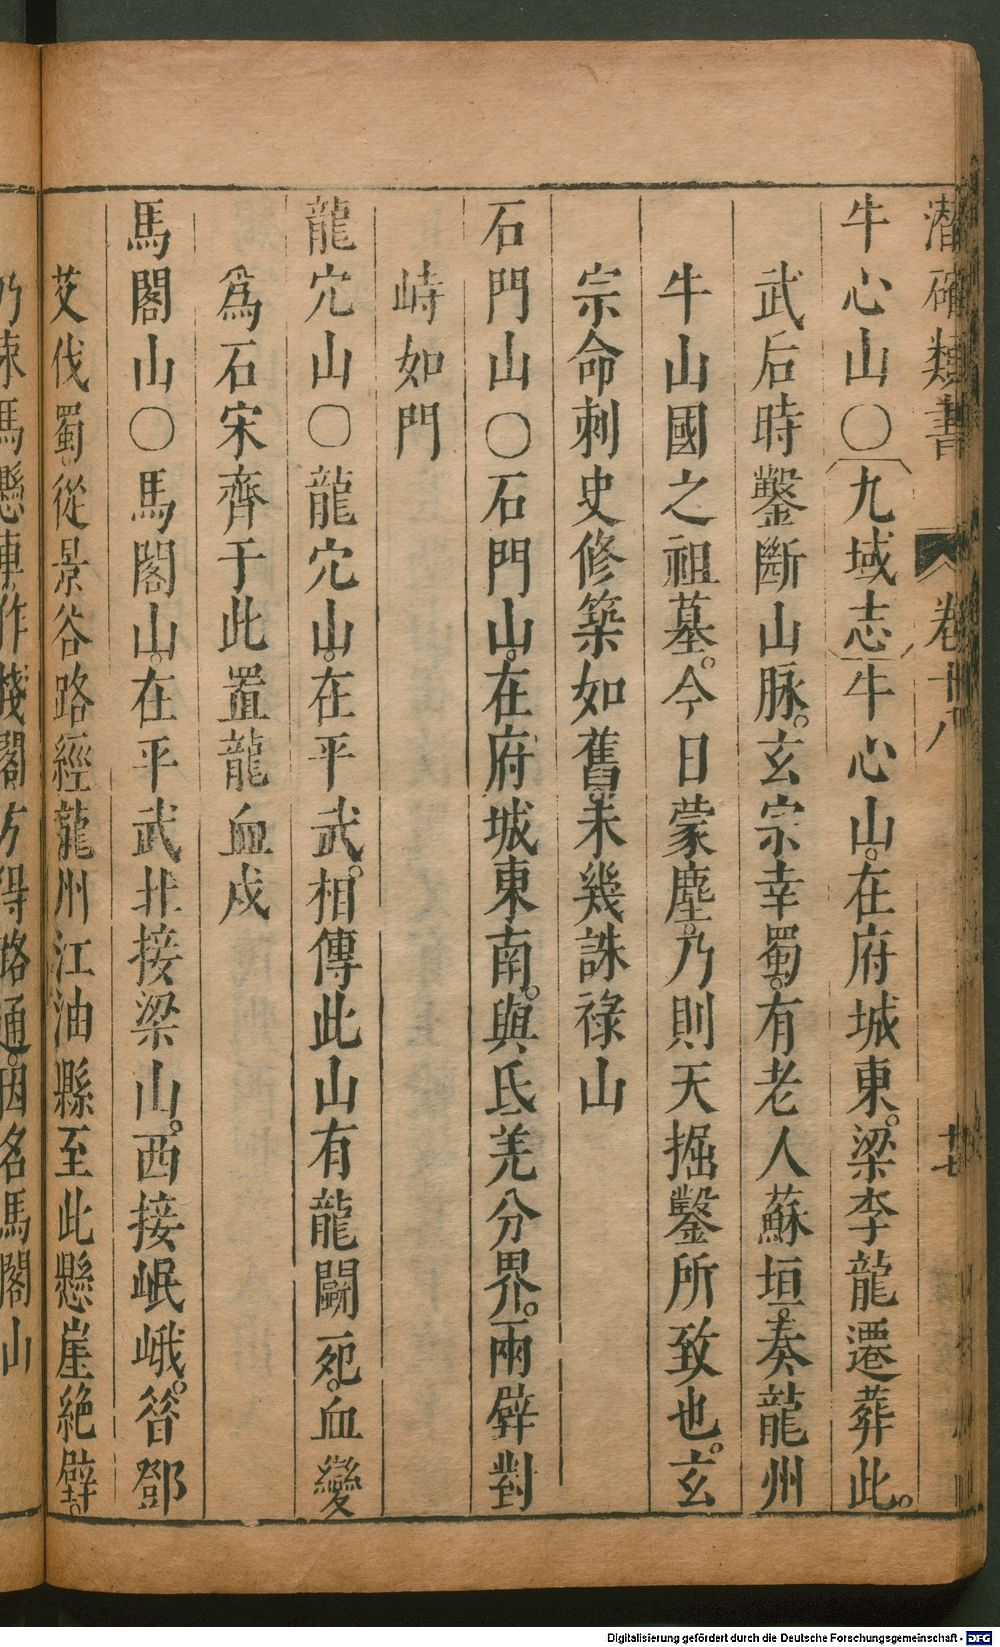 潛確類書 卷十八 十七
牛心山〇九域志牛心山。在府城東。梁李龍遷葬此。
武后時鑿斷山脉。玄宗幸蜀。有老人蘇垣。奏龍州
牛山國之祖墓。今日蒙塵。乃則天掘鑿所致也。玄
宗命刺史修築如舊。未幾誅祿山
石門山〇石門山。在府城東南。與氐羌分界。兩壁對
峙如門
龍穴山〇龍穴山。在平武。相傳此山有龍鬭死。血變
爲石宋齊于此置龍血戍
馬閣山〇馬閣山。在平武北接梁山。西接岷峨。昝鄧
艾伐蜀。從景谷路經龍州江油縣至此懸崖絶壁。
乃束馬懸車作棧閣方得路通。因名馬閣山
Digitalisierung gefördert durch die Deutsche Forschungsgemeinschaft - DFG